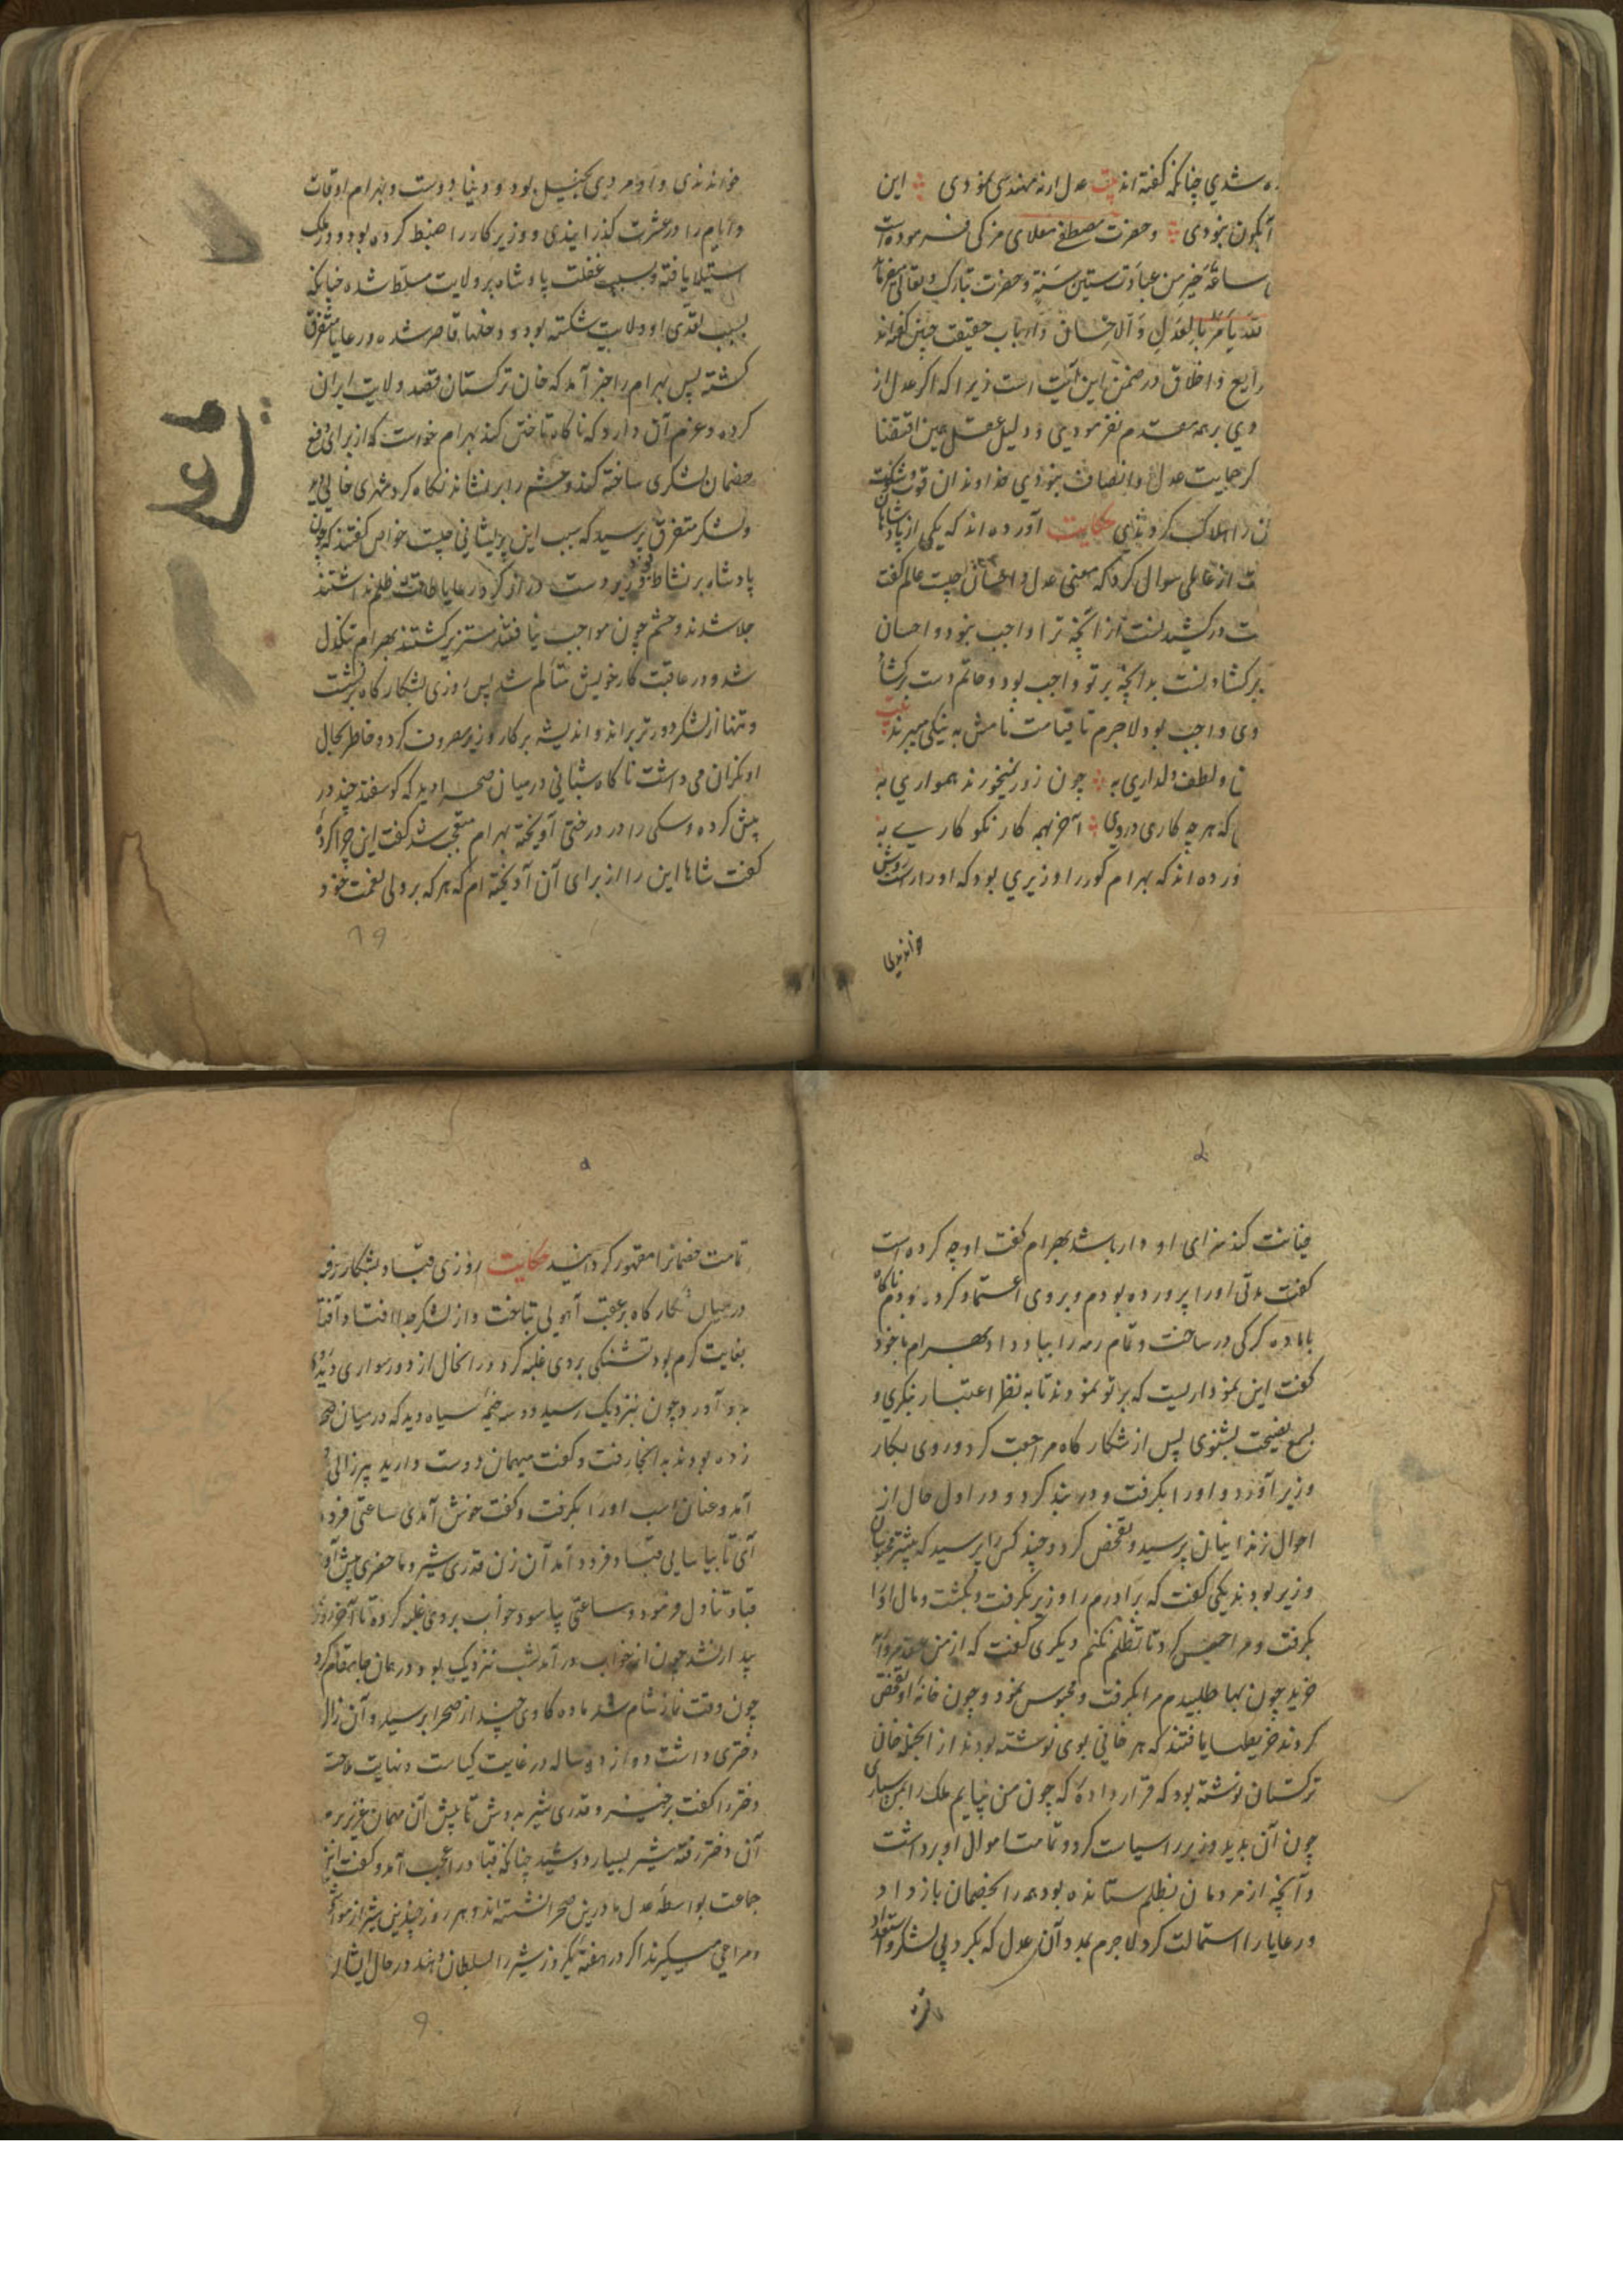 ه شدي چنانکه گفته اند بیت عدل ارنه مهندسی نمودی این
آبگون نبودی و حضرت مصطفی معلای مزکی فرموده است
ساعة خیر من عبادت ستین سنة و حضرت تبارک و تعالی میفرماید
یأمر بالعدل و الاحسان و ارباب حقیقت چنین گفته اند
رایع و اخلاق در ضمن این آیت است زیرا که اگر عدل از
وي بر همه مقدم نفرمودي و دلیل عقل همین اقتضا
کر حمایت عدل و انصاف نبودي خداوندان قوت و شوکت
ن را هلاک کردندي حکایت آورده اند که یکی از پادشاهان
ت از عالمی سوال کرد که معنی عدل و احسان چیست عالم گفت
ت درکشیدنست از آنچه ترا واجب نبود و احسان
برکشادنست بدانچه بر تو واجب بود و حاتم دست برکشاد
وی واجب بود لاجرم تا قیامت نامش به نیکی میبرند بیت
و لطف و دلداري به چون زور نمیخورند همواري به
که هر چه کاری دروی آخر همه کار نکو کاري به
ورده اند که بهرام کور را وزیري بود که او را راست روش
خواندندی
خواندندی و او مردی بخیل بود و دنیا دوست و بهرام اوقات
و ایام را در عشرت گذرانیدی و وزیر کار را ضبط کرده بود و در ملک
استیلا یافته و بسبب غفلت پادشاه بر ولایت مسلط شده چنانکه
بسبب تعدی او ولایت شکسته بود و دخلها قاصر شده و رعایا متفرق
کشته پس بهرام را خبر آمد که خان ترکستان قصد ولایت ایران
کرده و عزم آن دارد که ناکاه تاختن کند بهرام خواست که از برای دفع
خصمان لشکری ساخته کند و حشم را برنشاند نکاه کرد شهری خالی دید
و لشکر متفرق پرسید که سبب این پریشانی چیست خواص گفتند که چون
پادشاه بر نشاط و وزیر دست دراز کرد رعایا طاقت ظلم نداشتند
جلا شدند و حشم چون مواجب نیافتند متفرق کشتند بهرام تنکدل
شد و در عاقبت کار خویش متألم شد پس روزی بشکار کاه برنشست
و تنها از لشکر دورتر براند و اندیشه بر کار وزیر مصروف کرد و خاطر بحال
او نکران می داشت ناکاه شبانی در میان صحرا دید که کوسفند چند در
پیش کرده و سکی را در درختی آویخته بهرام متعجب شد گفت این چرا کرده
گفت شاها این را از برای آن آویخته ام که هر که بر ولی نعمت خود
خیانت کند سزای او دار باشد بهرام گفت او چه کرده است
گفت مدتی او را پرورده بودم و بر وی اعتماد کرده بودم ناکاه
با ماده کرکی در ساخت و تمام رمه را بباد داد بهرام با خود
گفت این نموداریست که بر تو نمودند تا به نظر اعتبار بنکري و
بسمع نصیحت بشنوی پس از شکار کاه مراجعت کرد و روی بکار
وزیر آورد و او را بکرفت و در بند کرد و در اول حال از
احوال زندانیان پرسید و تفحص کرد و چند کس را پرسید که بیشتر محبوسان
وزیر بودند یکی گفت که برادرم را وزیر بکرفت و بکشت و مال او را
بکرفت و مرا حبس کرد تا تظلم نکنم دیکری گفت که از من عقد مروارید
خرید چون بها طلبیدم مرا بکرفت و محبوس نمود و چون خانه او تفحص
کردند خریطها یافتند که هر خانی بوی نوشته بودند از آنجمله خان
ترکستان نوشته بود که قرار داده که چون من بیایم ملک را بمن سپاری
چون آن بدید وزیر را سیاست کرد و تمامت اموال او برداشت
و آنچه از مردمان بظلم ستانده بود همه را بخصمان باز داد
و رعایا را استمالت کرد لاجرم بمدد آن عدل که بکرد بی لشکر و استعداد
تمامت خصمانرا مقهور کردانید حکایت روزی قباد بشکار رفته
در میان شکار کاه بر عقب آهوئی بتاخت و از لشکر جدا افتاد و آفتاب
بغایت کرم بود تشنکی بر وی غلبه کرد در آنحال از دور سواری دید
آورد چون نزدیک رسید دو سه خیمه سیاه دید که در میان صحرا
زده بودند به آنجا رفت و گفت میهمان دوست دارید پیرزالی
آمد و عنان اسب او را بکرفت و گفت خوش آمدی ساعتی فرود
آی تا بیاسایی قباد فرود آمد آن زن قدری شیر و ماحضری پیش آورد
قباد تناول فرمود و ساعتی بیاسود خواب بر وی غلبه کرد تا آخر روز
بیدار نشد چون از خواب در آمد شب نزدیک بود و در همان جا مقام کرد
چون وقت نماز شام شد ماده کاوی چند از صحرا برسید و آن زال
دختری داشت دوازده ساله در غایت کیاست و نهایت ملاحت
دختر را گفت برخیز و قدری شیر بدوش تا پیش آن مهمان عزیز بریم
آن دختر رفته شیر بسیار دوشید چنانکه قباد را عجب آمد و گفت این
جماعت بواسطه عدل ما درین صحرا نشسته اند و هر روز چندین شیر از مواشی
و مراعی میکیرند اکر در هفته یکروز شیر را بسلطان دهند در حال ایشان